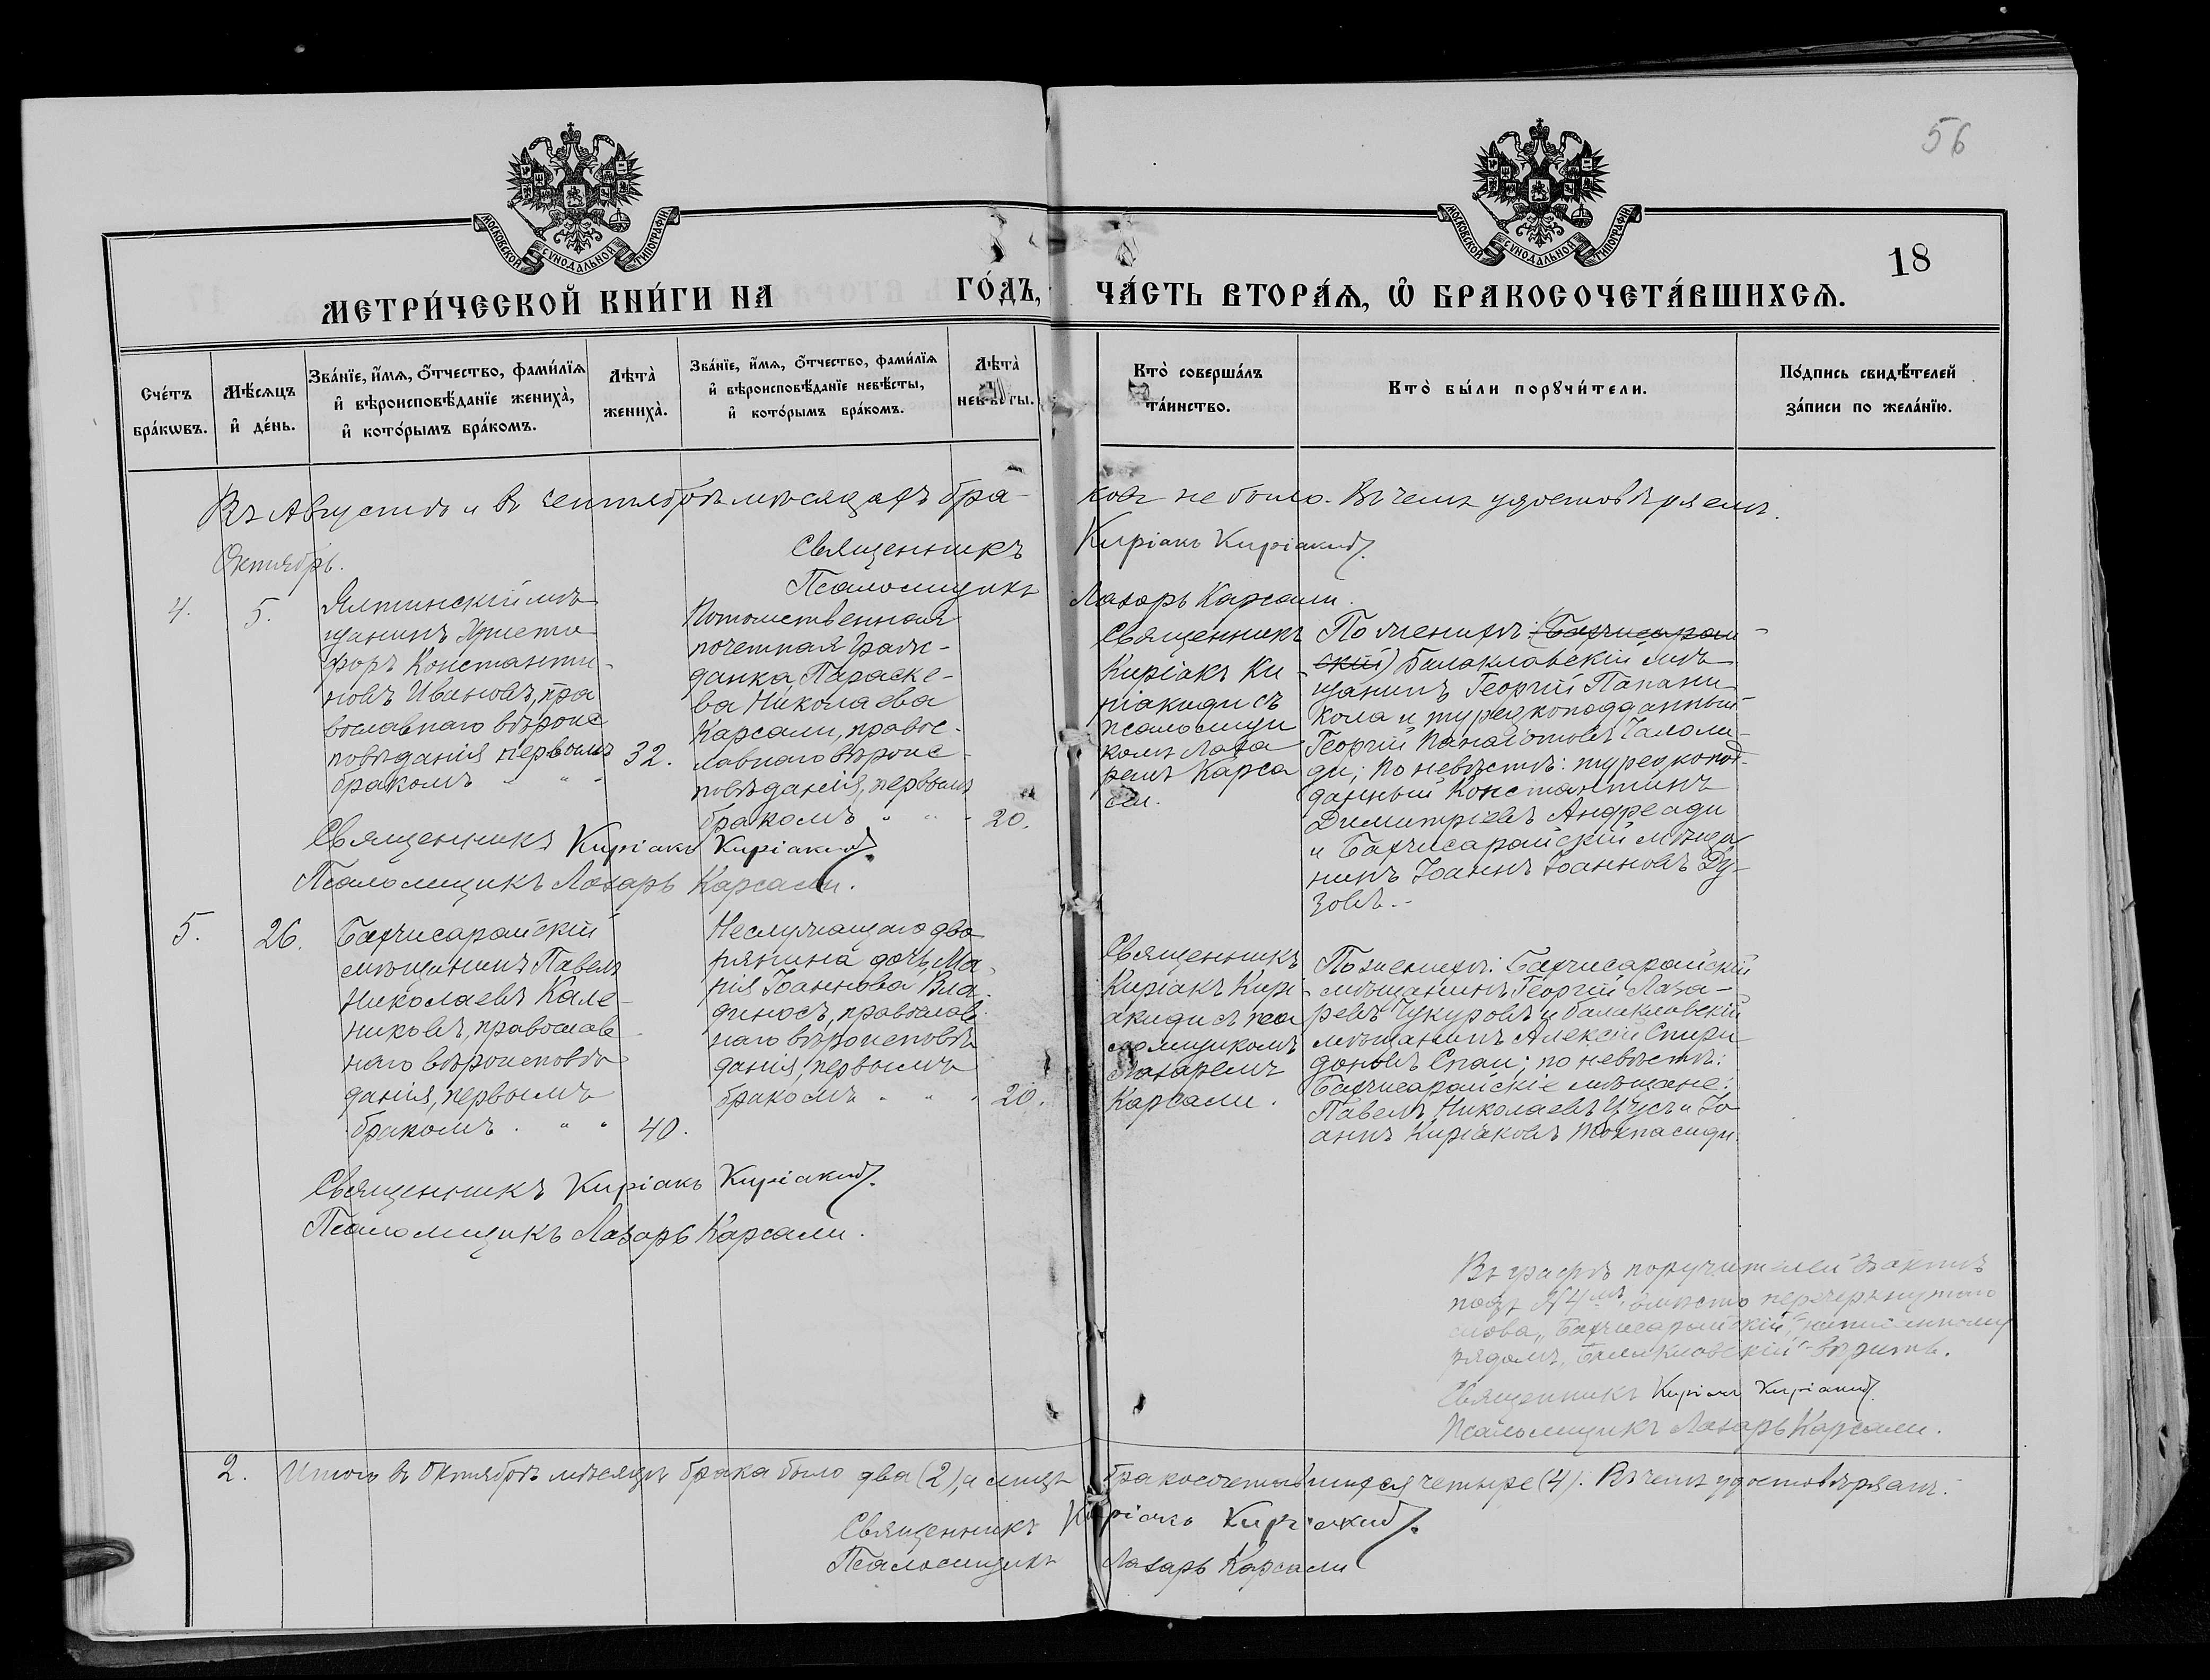 56
МОСКОВСКОЙ СѴНОДАЛЬНОЙ ТИПОГРАФІИ
МОСКОВСКОЙ СѴНОДАЛЬНОЙ ТИПОГРАФІИ
18
МЕТРИ́ЧЕСКОЙ КНИ́ГИ НА ГО́ДЪ, ЧА́СТЬ ВТОРА́Ѧ, Ѽ БРАКОСОЧЕТА́ВШИХСѦ.
Сче́тъ
бра́кѡвъ.
Мѣ́сѧцъ
и҆ де́нь.
Зва́нїе, и҆́мѧ, ѻ҆́тчество, фами́лїѧ
и҆ вѣроисповѣ́данїе жениха̀,
и҆ кото́рымъ бра́комъ.
Лѣта̀
жениха̀.
Зва́нїе, и҆́мѧ, ѻ҆́тчество, фами́лїѧ
и҆ вѣроисповѣ́данїе невѣ́сты,
и҆ кото́рымъ бра́комъ.
Лѣта̀
невѣ́сты.
Кто̀ соверша́лъ
та́инство.
Кто̀ бы́ли порꙋчи́тели.
По́дпись свидѣ́телей
за́писи по жела́нїю.
Въ Августѣ и въ сентябрѣ мѣсяцахъ бра-
ковъ не было. Въ чемъ удостовѣряемъ.
Священникъ Киріакъ Киріакиди
Псаломщикъ Лазарь Карсали.
Октябрь.
4.
5.
Ялтинскій мѣ-
щанинъ Христо-
форъ Константи-
новъ Ивановъ, пра
вославнаго вѣроис
повѣданія первымъ
бракомъ " "
32.
Потомственная
почетная граж-
данка Параске-
ва Николаева
Карсали, правос-
лавнаго вѣроис-
повѣданія, первымъ
бракомъ " " "
20.
Священникъ
Киріакъ Ки-
ріакиди съ
псаломщи
комъ Лаза
ремъ Карса
ли.
По женихѣ: (Бахчисарай-
скій) балаклавскій мѣ-
щанинъ Георгій Папани-
кола и турецкоподданный
Георгій Панаіотовъ
ди; по невѣстѣ: турецкопод-
данный Константинъ
Димитріевъ Андреади
и Бахчисарайскій мѣща
нинъ Іоаннъ Іоанновъ Ду-
зовъ.-
Священникъ Киріакъ Киріакиди
Псаломщикъ Лазарь Карсали.
5.
26.
Бахчисарайскій
мѣщанинъ Павелъ
Николаевъ Кале-
никовъ, православ
наго вѣроисповѣ-
данія, первымъ
бракомъ . " "
40.
Неслужащаго дво
рянина дочь, Ма-
рія Іоаннова Вла-
диносъ, православ-
наго вѣроисповѣ
данія, первымъ
бракомъ " " "
20.
Священникъ
Киріакъ Кирі-
акиди съ пса
ломщикомъ
Лазаремъ
Карсали.
По женихѣ: Бахчисарайскій
мѣщанинъ Георгій Лаза-
ревъ Чукуровъ и балаклавскій
мѣщанинъ Алексій Спири-
доновъ Спаи; по невѣстѣ:
Бахчисарайскіе мѣщане:
Павелъ Николаевъ и Іо-
аннъ Киріаковъ
Священникъ Киріакъ Киріакиди
Псаломщикъ Лазарь Карсали.
Въ графѣ поручителей въ актѣ
подъ №4мъ вмѣсто перечеркнутаго
слова „Бахчисарайскій", написанному
рядомъ „балаклавскій" вѣрить.
Священникъ Киріакъ Киріакиди
Псаломщикъ Лазарь Карсали.
2. Итого въ Октябрѣ мѣсяцѣ брака было два (2), а лицъ бракосочетавшихся четыре (4). Въ чемъ удостовѣряемъ:
Священникъ Киріакъ Киріакиди
Псаломщикъ Лазарь Карсали